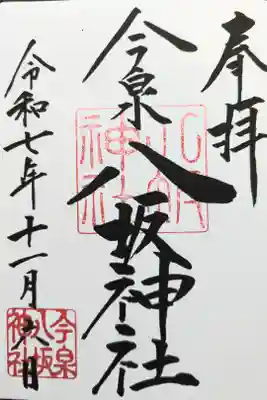 奉拝
今泉八坂神社
八坂神社
令和七年十一月六日
今泉八坂神社